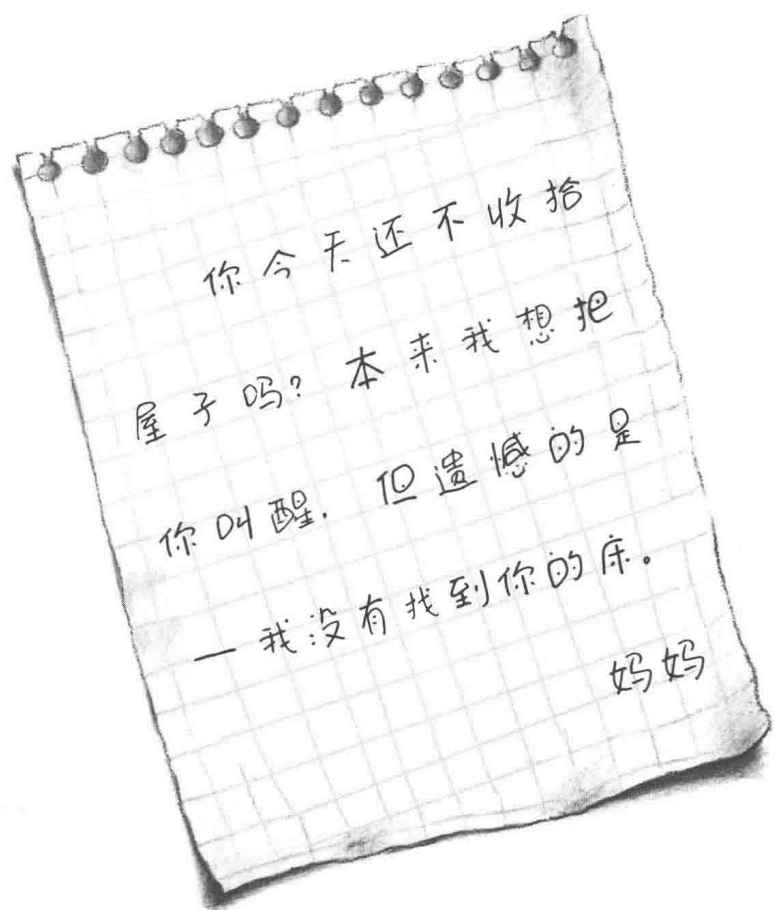 你今天还不收拾
屋子吗？本来我想把
你叫醒．但遗憾的是
一我没有找到你的床。
妈妈